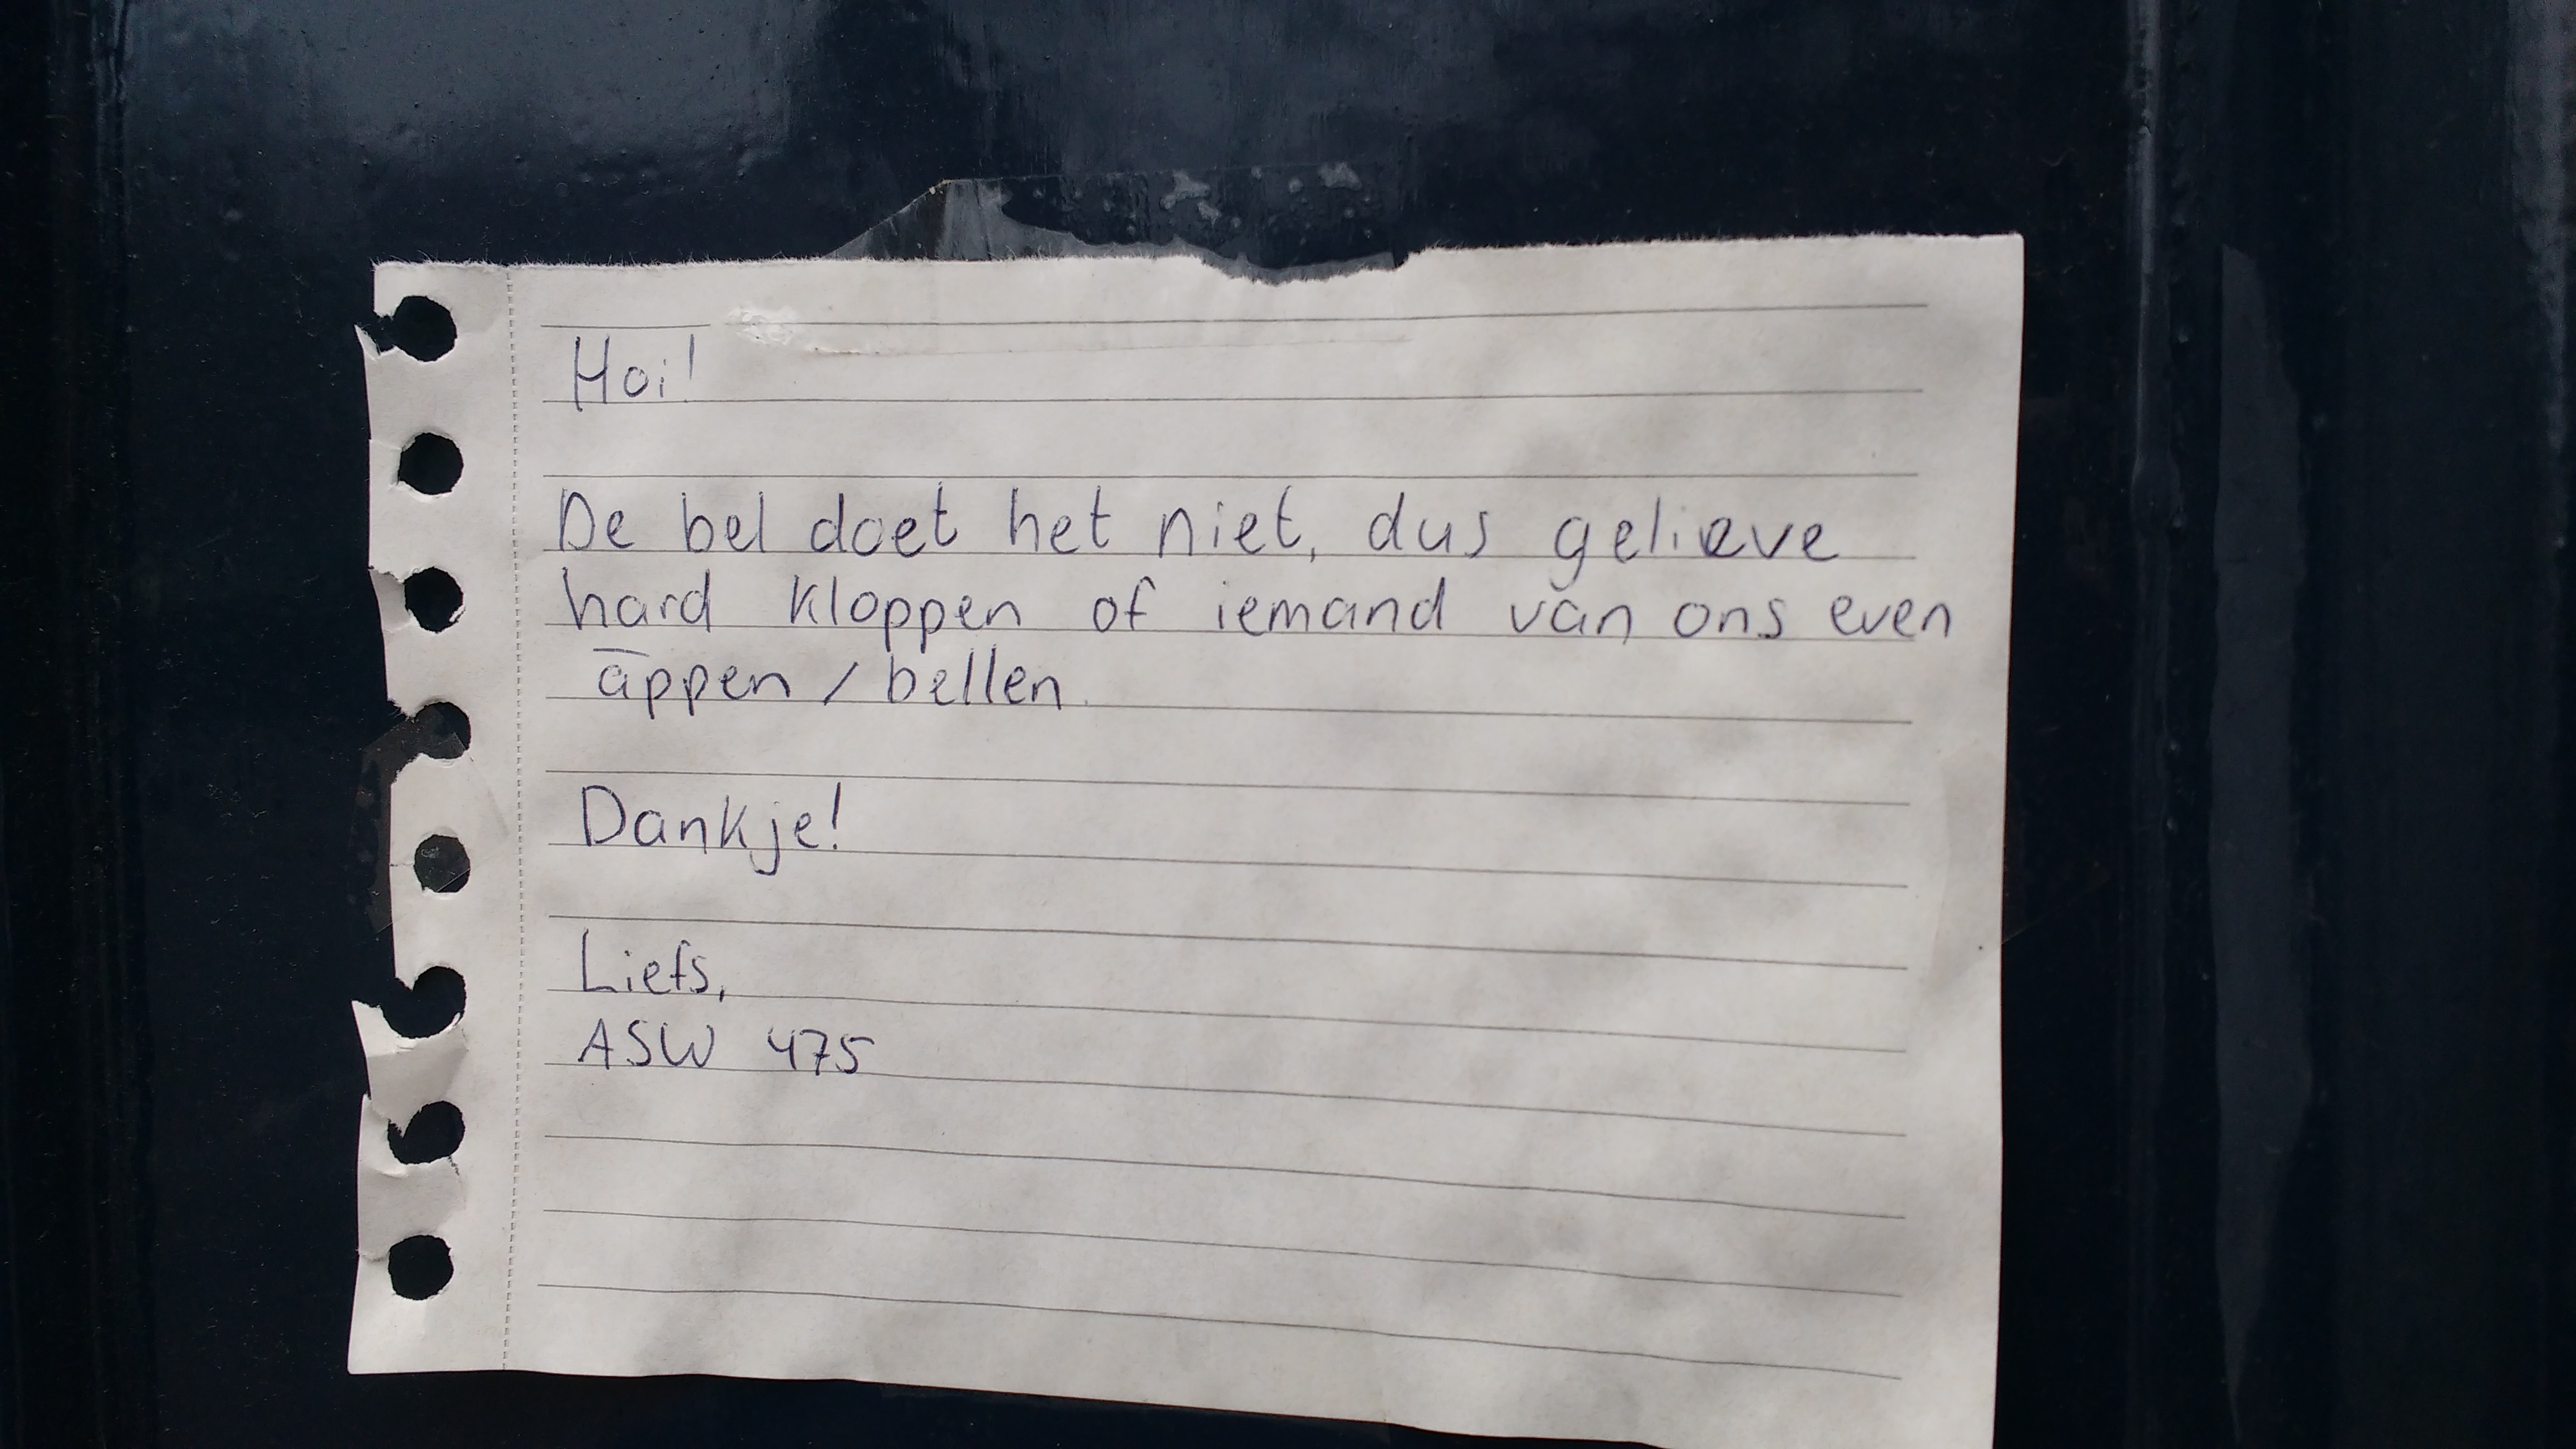 Hoi!
De bel doet het niet, dus gelieve
hard kloppen of iemand van ons even
appen / bellen.
Dankje!
Liefs,
ASW 475